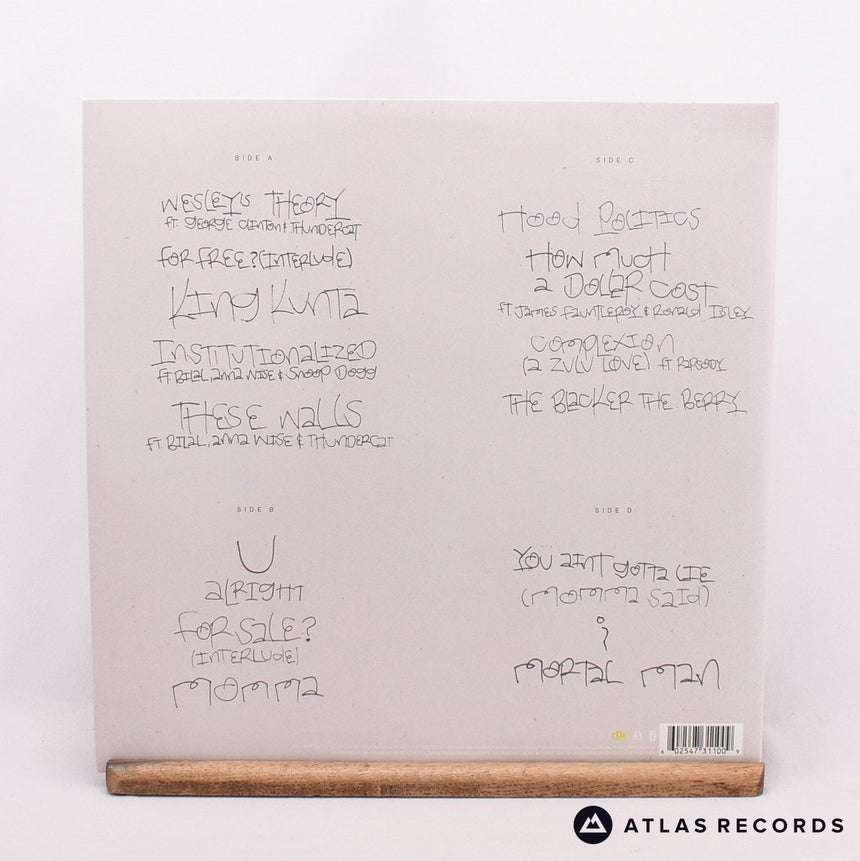 SIDE A
WESLEY'S THEORY
ft. GEORGE CLINTON & THUNDERCAT
FOR FREE? (INTERLUDE)
King Kunta
INSTITUTIONALIZED
ft. BILAL, anna WISE & Snoop Dogg
THESE WALLS
ft. BILAL, anna WISE & THUNDERCAT
SIDE B
U
alRIGHT
FOR SALE?
(INTERLUDE)
MOMMA
SIDE C
Hood POLITICS
HOW MUCH
a DOLLAR COST
ft. James Fauntleroy & Ronald ISLEY
COMPLEXION
(a ZULU LOVE) ft RAPSODY
THE BLACKER THE BERRY
SIDE D
YOU AINT gOTTa LIE
(MOMMa SAID)
i
MORTAL Man
6 02547 31100 9
ATLAS RECORDS